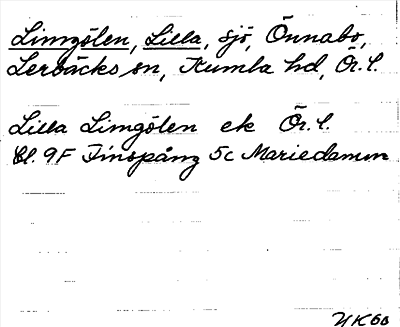 Limgölen, Lilla, sjö, Önnabo,
Lerbäcks sn, Kumla hd, Ör. l.
Lilla Limgölen ek Ör. l.
Bl. 9F Finspång 5c Mariedamm
NK60